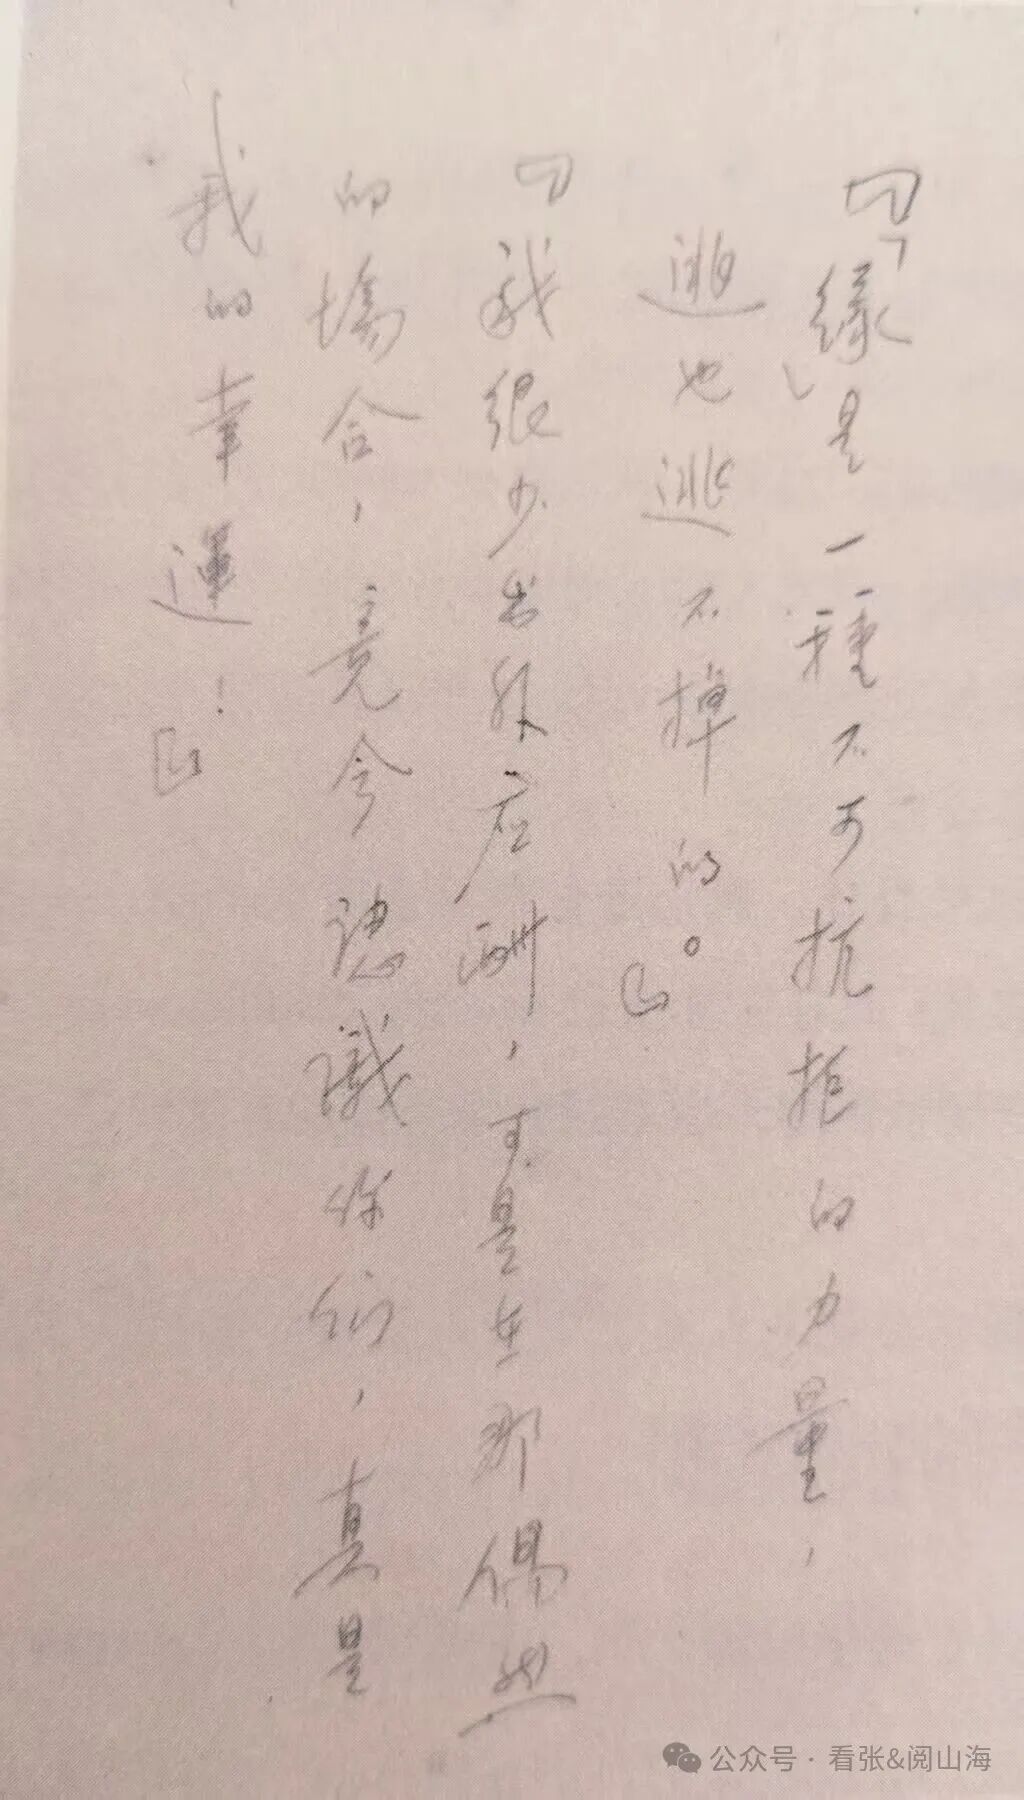 『「緣」是一種不可抗拒的力量，
逃也逃不掉的。』
『我很少出外应酬，可是在那偶然
的場合，竟会認識你们，真是
我的幸運！』
公众号·看张&阅山海